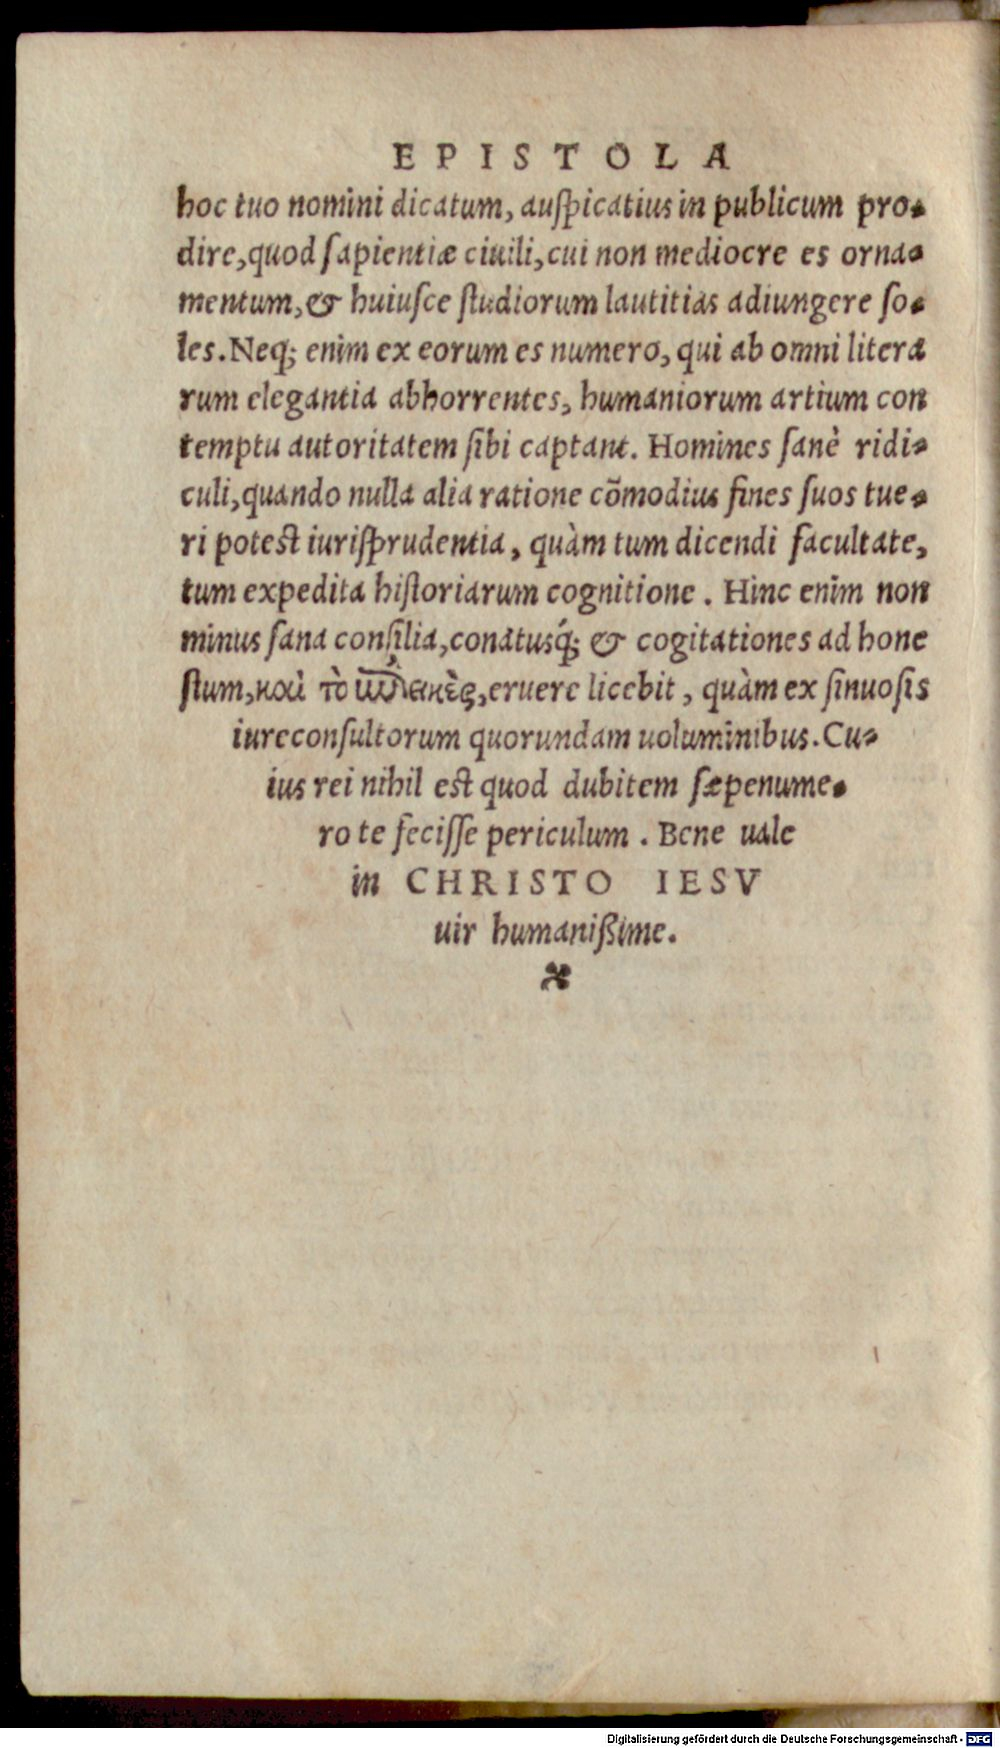 EPISTOLA
hoc tuo nomini dicatum, auſpicatius in publicum pro-
dire, quod ſapientiæ ciuili, cui non mediocre es orna-
mentum, & huiuſce ſtudiorum lautitias adiungere ſo-
les. Neq; enim ex eorum es numero, qui ab omni litera
rum elegantia abhorrentes, humaniorum artium con
temptu autoritatem ſibi captant. Homines ſanè ridi-
culi, quando nulla alia ratione cõmodius fines ſuos tue-
ri poteſt iuriſprudentia, quàm tum dicendi facultate,
tum expedita hiſtoriarum cognitione. Hinc enim non
minus ſana conſilia, conatusq́; & cogitationes ad hone
ſtum, καὶ τὸ ἐπιεικὲς, eruere licebit, quàm ex ſinuoſis
iureconſultorum quorundam uoluminibus. Cu-
ius rei nihil eſt quod dubitem ſæpenume-
ro te feciſſe periculum. Bene uale
in CHRISTO IESV
uir humaniſsime.
Digitalisierung gefördert durch die Deutsche Forschungsgemeinschaft - DFG